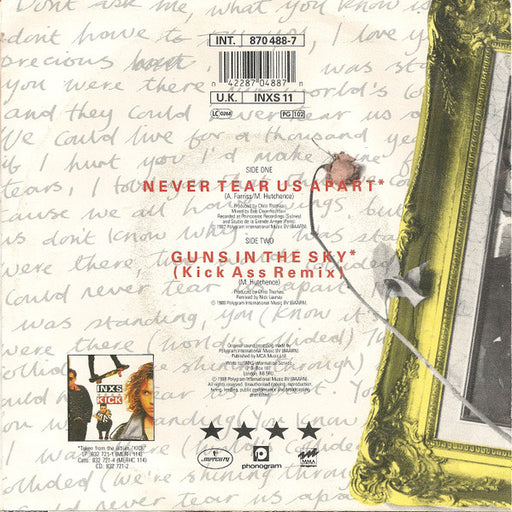 Don't ask me, what you know is
don't have to
I love y
precious
was sta
you were there
world's
and they could
tear us
We could live for a thousand ye
if I hurt you I'd make
tears, I
INT. 870 488-7
0 42287 04887
U.K. INXS 11
LC 0268
PG 102
SIDE ONE
NEVER TEAR US APART*
(A. Farriss/M. Hutchence)
Produced by Chris Thomas
Mixed by Bob Clearmountain
Recorded at Rhinoceros Recordings (Sydney)
and Studio de la Grande Armee (Paris)
℗ 1987 Polygram International Music BV (BAARN)
SIDE TWO
GUNS IN THE SKY*
(Kick Ass Remix)
(M. Hutchence)
Produced by Chris Thomas
Remixed by Nick Launay
℗ 1988 Polygram International Music BV (BAARN)
because we all have wings but
us don't know why
were there
could never tear us apart
I was standing, you (know it
were there (world collided)
could never tear us
Original sound recordings made by
Polygram International Music BV (BAARN)
Published by MCA Music Ltd.
Write to: INXS Information Service,
P O Box 107
London, N6 5RU
© 1988 Polygram International Music BV (BAARN)
All rights reserved. Unauthorised copying, reproduction,
hiring, lending, public performance and broadcasting prohibited.
INXS
KICK
*Taken from the album 'KICK'
LP. 832 721-1 (MERH 114)
Cass. 832 721-4 (MERHC 114)
CD. 832 721-2
mercury
phonogram
MMA
collided (we're shining through
could never tear us apart